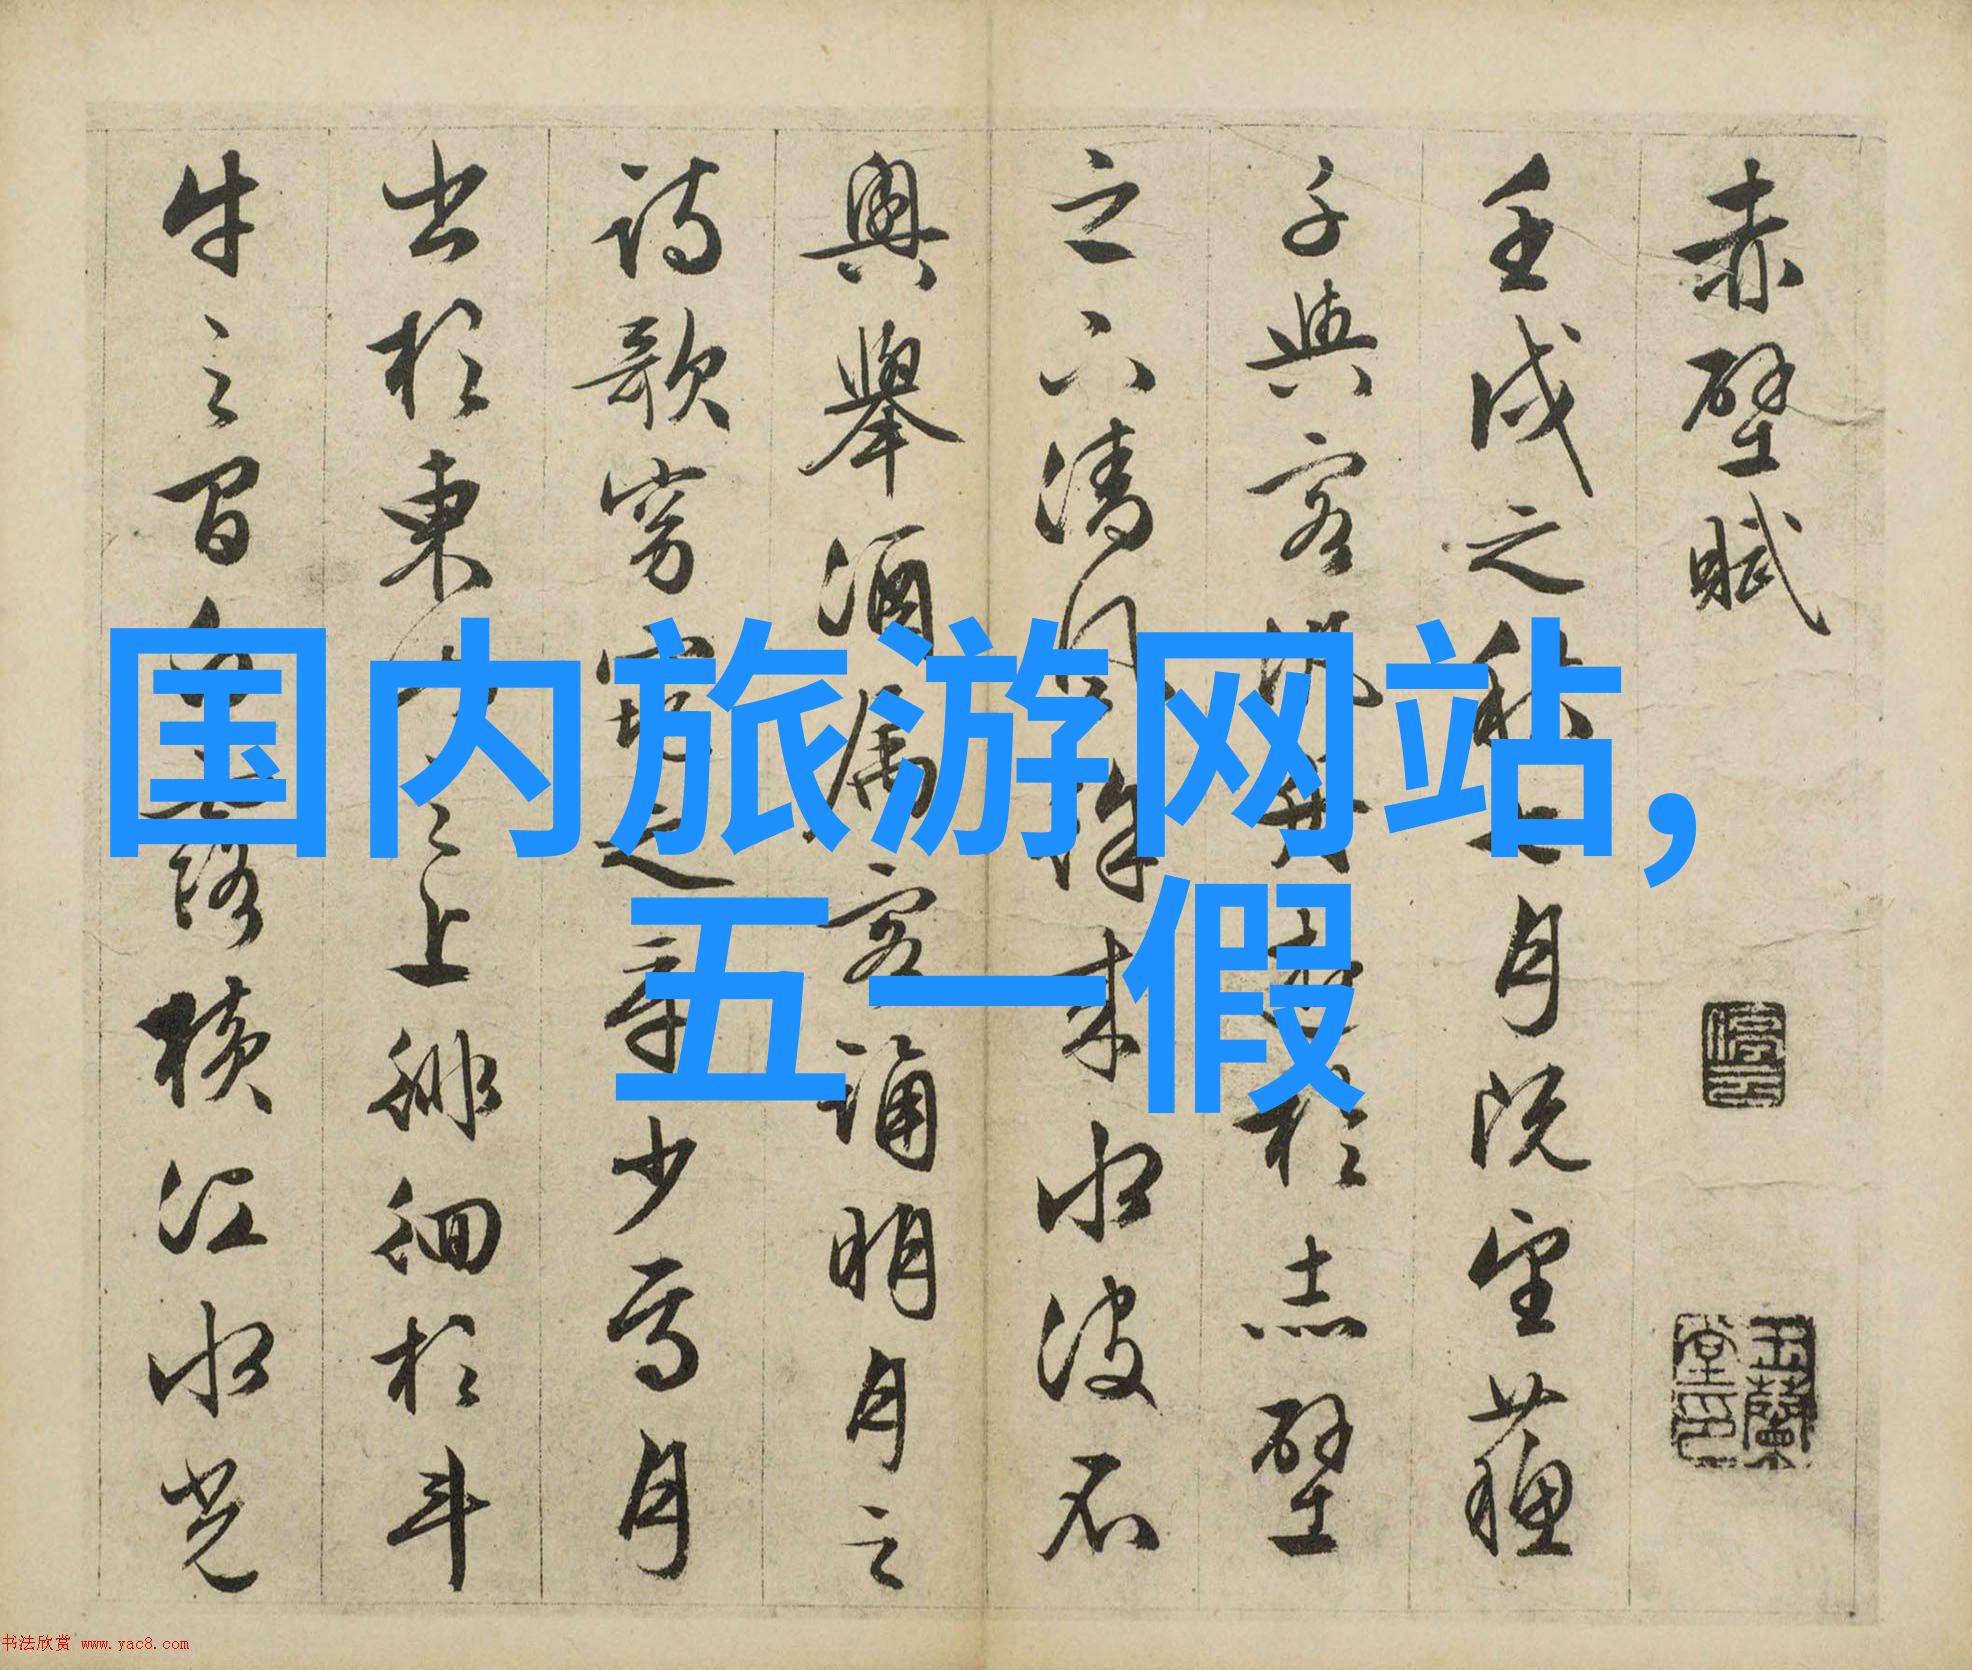 赤壁賦
停云
玉蘭堂印
壬戌之秋七月既望蘇
子與客汎舟遊於赤壁
之下清風徐來水波不
興舉酒屬客誦明月之
詩歌窈窕之章少焉月
出於東山之上徘徊於斗
牛之間白露橫江水光
国内旅游网站,
五一假
书法欣赏 www.yac8.com